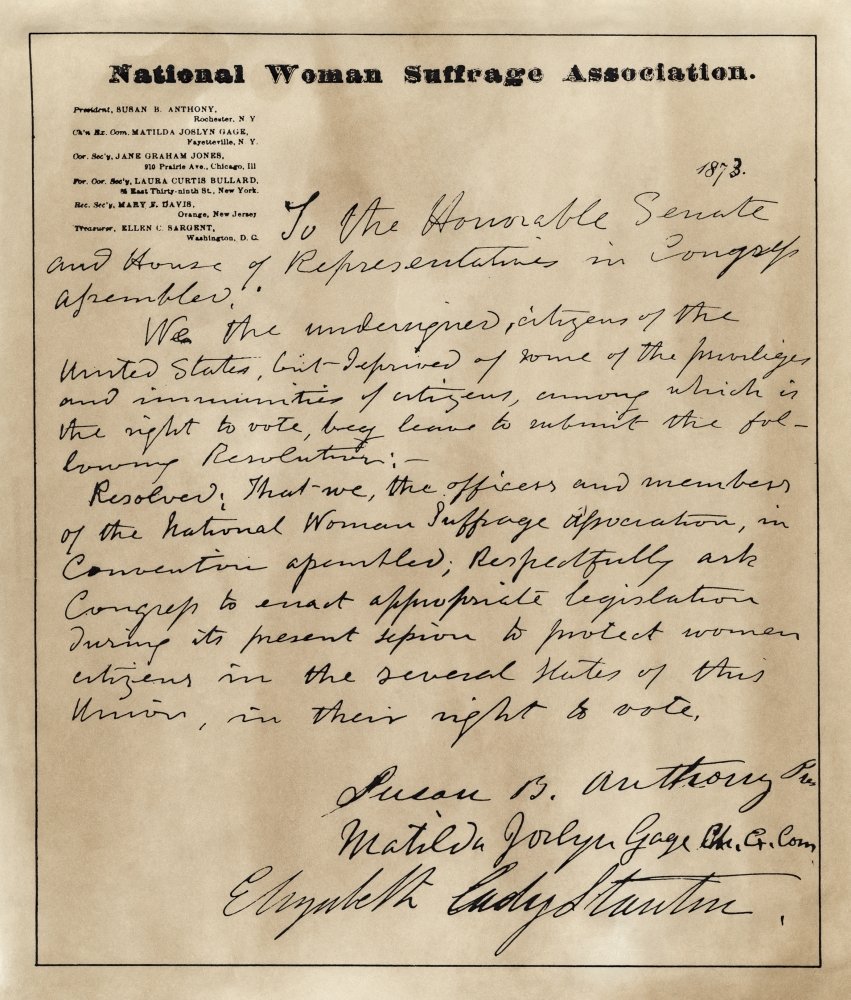 National Woman Suffrage Association.
President, SUSAN B. ANTHONY,
Rochester, N. Y
Ch'n Ex. Com. MATILDA JOSLYN GAGE,
Fayetteville, N. Y.
Cor. Sec'y, JANE GRAHAM JONES,
910 Prairie Ave., Chicago, Ill
For. Cor. Sec'y, LAURA CURTIS BULLARD,
86 East Thirty-ninth St., New York.
Rec. Sec'y, MARY F. DAVIS,
Orange, New Jersey
Treasurer, ELLEN C. SARGENT,
Washington, D. C.
1873.
To the Honorable Senate
and House of Representatives in Congress
assembled.
We the undersigned, citizens of the
United States, but deprived of some of the priviliges
and immunities of citizens, among which is
the right to vote, beg leave to submit the fol-
lowing Resolution:-
Resolved; That we, the officers and members
of the National Woman Suffrage Association, in
Convention assembled; Respectfully ask
Congress to enact appropriate legislation
during its present session to protect women
citizens in the several States of this
Union, in their right to vote.
Susan B. Anthony Pres
Matilda Joslyn Gage Ch. Ex. Com
Elizabeth Cady Stanton.